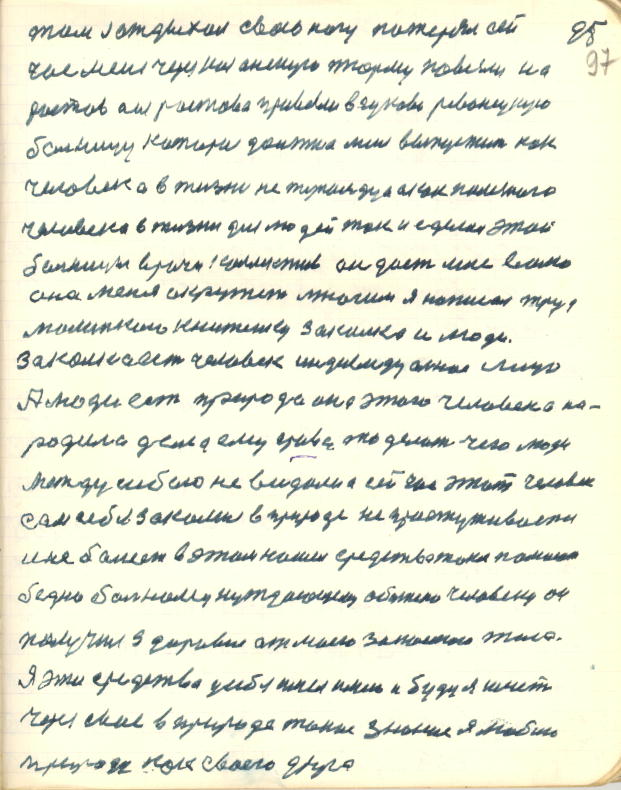 том я отдыхал свою ногу потерял сей
час меня через казанскую тюрму повезли на
ростов а из ростова привезли в
больницу которая должна мня выпустит как
человека в жизни не а как полезного
человека в жизни для людей так и сделал этой
больницы врачи колектив он дает мне
она меня окружает многим я написал труд
маленькою книжечку закалка и люди.
Закаливает человек индивидуалное лицо
А люди ест природа она этого человека на-
родила дала ему права то делат чего люди
между собою не видали а сей час этот человек
сам себя закалил в природе не простуживается
и не болеет в этом нашол средства помогат
бедно болному нуждающему человеку он
получил здоровие от моего закального тела.
Я эти средства у себя имел имею и буду я имет
через свое в природе такое знание я люблю
природу как своего друга
95
97